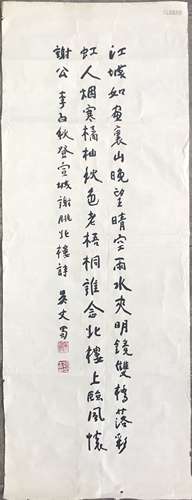 江城如畫裏山晚望晴空雨水夾明鏡雙橋落彩
虹人烟寒橘柚秋色老梧桐誰念北樓上臨風懷
謝公 李白秋登宣城謝朓北樓詩 吳丈蜀